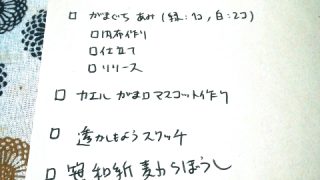 □ がまぐち あみ (緑:1コ, 白:2コ)
□ 内布作り
□ 仕立て
□ リリース
□ カエル がま口 マスコット作り
□ 透かしもよう スワッチ
□ 和紙 麦わらぼうし